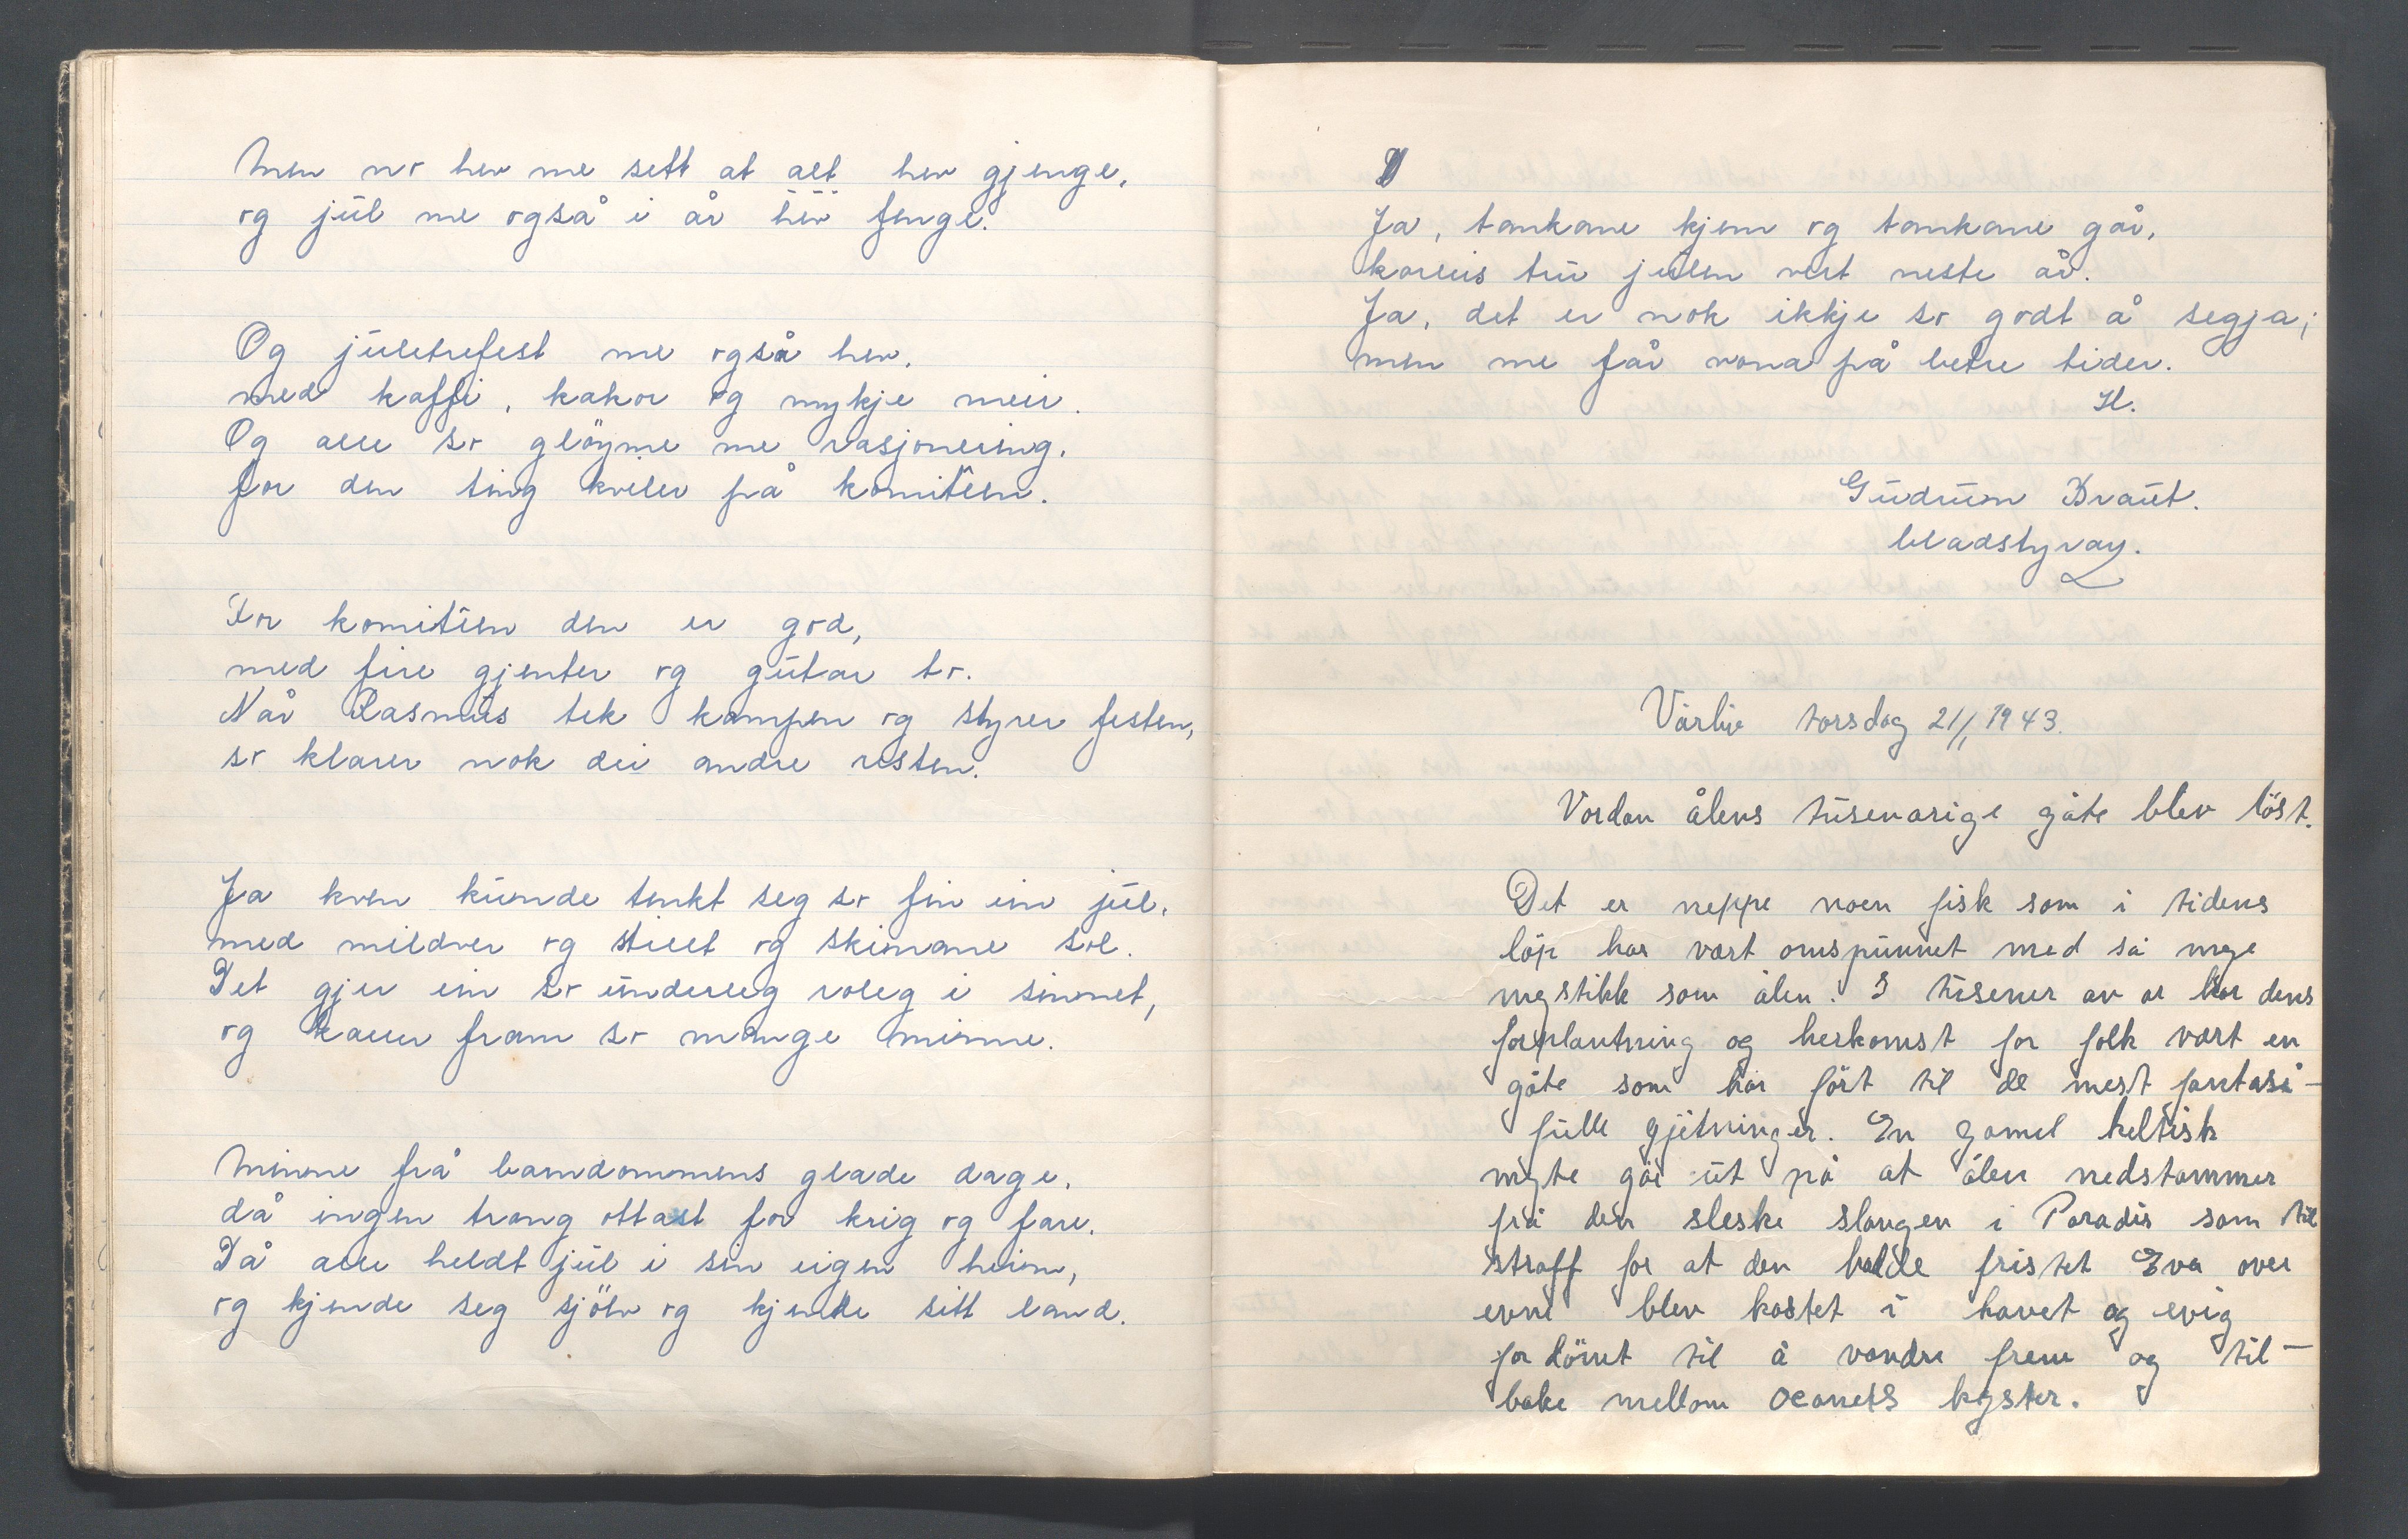 Men no hev me sett at alt hev gjenge,
og jul me også i år hev fenge.
Og juletrefest me også hev,
med kaffi, kakor og mykje meir.
Og alle so glöyme me rasjonering,
for den ting kviler på komitéen.
For komitéen den er god,
med fire gjenter og gutar to.
Når Rasmus tek kampen og styrer festen,
so klarer nok dei andre resten.
Ja kven kunde tenkt seg so fin ein jul,
med mildver og stilt og skinane sol.
Det gjer ein so underleg roleg i sinnet,
og kaller fram so mange minne.
Minne frå barndommens glade dage,
då ingen trong ottast for krig og fare.
Då alle heldt jul i sin eigen heim,
og kjende seg sjölv og kjende sitt land.
Ja, tankane kjem og tankane går,
korleis tru julen vert neste år.
Ja, det er nok ikkje so godt å segja;
men me får vona på betre tider.
H.
Gudrun Braut.
bladstyrar.
Vårliv torsdag 21/1 1943.
Vordan ålens tusenarige gåte blev löst.
Det er neppe noen fisk som i tidens
löp har vært omspunnet med så mye
mystikk som ålen. I tusener av år har dens
forplantning og herkomst for folk vært en
gåte som har fört til de mest fantasi-
fulle gjetninger. En gamel keltisk
myte går ut på at ålen nedstammer
frå den sleske slangen i Paradis som til
straff for at den hadde fristet Eva over
evne blev kastet i havet og evig
fordömt til å vandre frem og til-
bake mellom oceanets kyster.